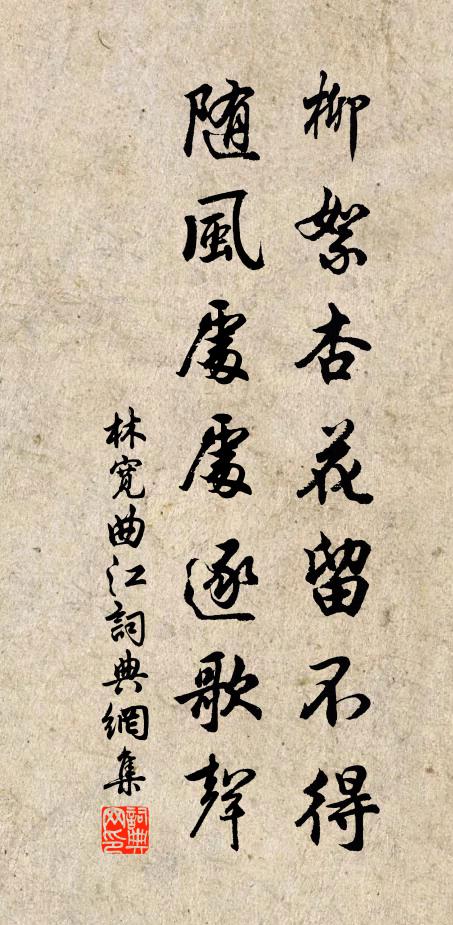 柳絮杏花留不得
随風處處逐歌聲
林寬曲江詞典網集
詞典网印